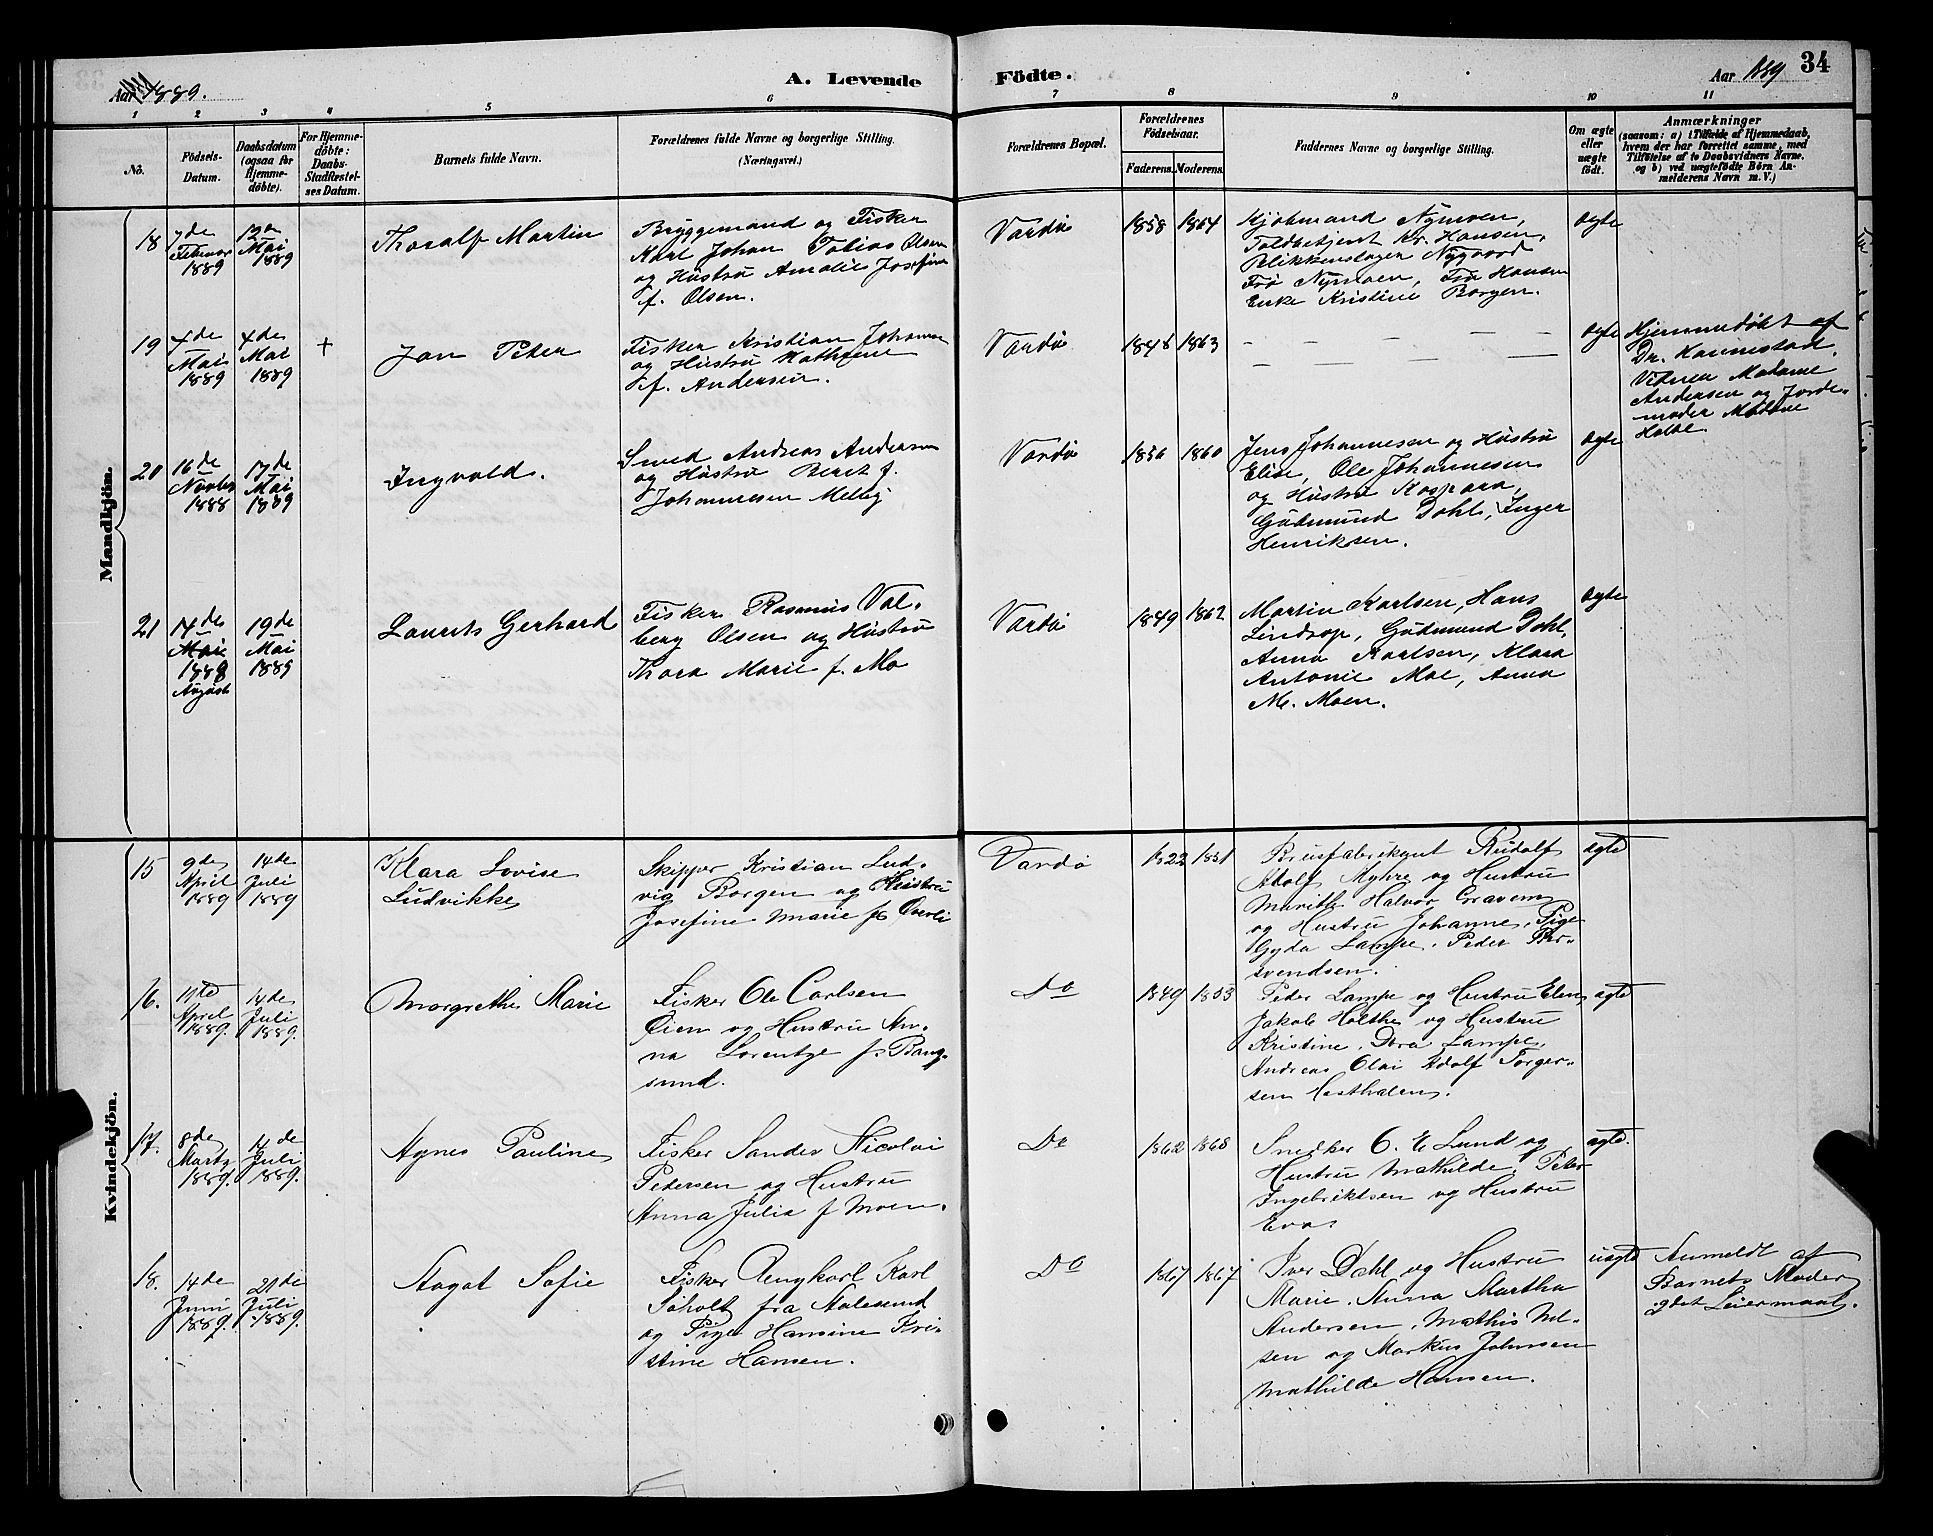 Aar 1889.
A. Levende Födte.
Aar 1889
34
1 2 3 4 5 6 7 8 9 10 11
No.
Födsels-Datum.
Daabsdatum (ogsaa for Hjemme-döbte).
For Hjemme-döbte: Daabs-Stadfæstel-ses Datum.
Barnets fulde Navn.
Forældrenes fulde Navne og borgerlige Stilling. (Næringsvei.)
Forældrenes Bopæl.
Forældrenes Födselsaar.
Faderens. Moderens.
Faddernes Navne og borgerlige Stilling.
Om ægte eller uægte födt.
Anmærkninger
(saasom: a) i Tilfælde af Hjemmedaab,
hvem der har forrettet samme, med
Tilföielse af to Daabsvidners Navne.
og b) ved uægtefödte Börn An-
melderens Navn m. V.)
Mandkjön.
18
7de Februar 1889
Mai 1889
Thoralf Martin
Bryggemand og Fisker
Karl Johan Tobias Olsen
og Hustru Amalie Josefine
f. Olsen.
Vardö
1858 1864
Kjøbmand Nymoen,
Toldbetjent Kr. Hansen,
Blikkenslager Nygaard
Fru Nymoen, Fru Hansen
Enke Kristine Borgen.
ægte
19
4de Mai 1889
4de Mai 1889
+
Jan Peter
Fisker Kristian Johansen
og Hustru Mathæne
f. Andersen.
Vardö
1848 1863
ægte
Hjemmedøbt af
Dr. Kannestad.
Vidner Madame
Andersen og Jorde-
moder Madame
Holbe
20
16de Novbr 1888
17de Mai 1889
Ingvald.
Smed Andreas Andersen
og Hustru Beret f.
Johannesen Melby
Vardö
1856 1860
Jens Johannesen og Hustru
Elise, Ole Johannesen
og Hustru Kaspara,
Gudmund Dahl, Inger
Henriksen.
ægte
21
14de Mai 1888 August
19de Mai 1889
Laurits Gerhard
Fisker Rasmus Val-
berg Olsen og Hustru
Thora Marie f. Mo
Vardö
1849 1862
Martin Karlsen, Hans
Lindrop, Gudmund Dahl,
Anna Karlsen, Klara
Antonie Moe, Anna
M. Moen.
ægte
Kvindekjön.
15
9de April 1889
14de Juli 1889
Klara Lovise
Ludvikke
Skipper Kristian Lud-
vig Borgen og Hustru
Josefine Marie f. Överli
Vardö
1822 1851
Brusfabrikant Rudolf
Adolf Myhre og Hustru
Marith. Halvor Gravem
og Hustru Johanne, Pige
Gyda Lampe. Peder Ber-
svendsen.
ægte
16.
11te April 1889.
14de Juli 1889.
Margrethe Marie
Fisker Ole Carlsen
Öien og Hustru An-
na Lorentze f. Bang-
sund.
Do
1849 1853
Peder Lampe og Hustru Elen,
Jakob Holthe og Hustru
Kristine. Dora Lampe.
Andreas Olai Adolf Torger-
sen Hasthalen.
ægte
17.
8de Marts 1889.
14de Juli 1889.
Agnes Pauline
Fisker Sander Nicolai
Pedersen og Hustru
Anna Julia f Moen.
Do
1862 1868
Snedker O. E Lund og
Hustru Mathilde. Peter
Ingebriktsen og Hustru
Eva.
ægte.
18.
14de Juni 1889.
21de Juli 1889.
Aagot Sofie
Fisker Karl
Söholt fra Aalesund
og Pige Hansine Kri-
stine Hansen.
Do
1867 1867
Iver Dahl og Hustru
Marie. Anna Martha
Andersen. Mathis Nil-
sen og Markus Johnsen
Mathilde Hansen.
uægte
Anmeldt af
Barnets Moder
Leiermaal.